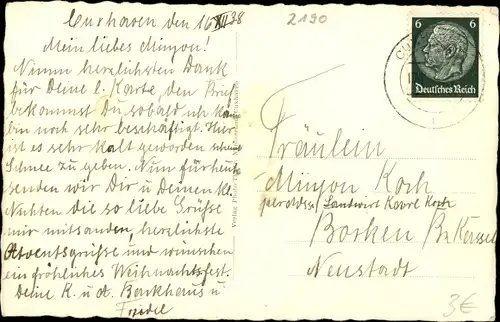 Cuxhaven den 16 XII 38
Mein liebes Minjon!
Nimm herzlichsten Dank
für Deine l. Karte den Brief
bekommst Du sobald ich kann
bin noch sehr beschäftigt. Hier
ist es sehr kalt geworden scheint
Schnee zu geben. Nun für heute
senden wir Dir u Deinen kl.
Nichten die so liebe Grüsse
mir mitsanden, herzlichste
Adventsgrüsse und wünschen
ein fröhliches Weihnachtsfest.
Deine K. u. A. Backhaus u
Friedel
2190
6 6
Deutsches Reich
Fräulein
Minjon Koch
per Adresse Landwirt Karl Koch
Borken Bz Kassel
Neustadt
3€